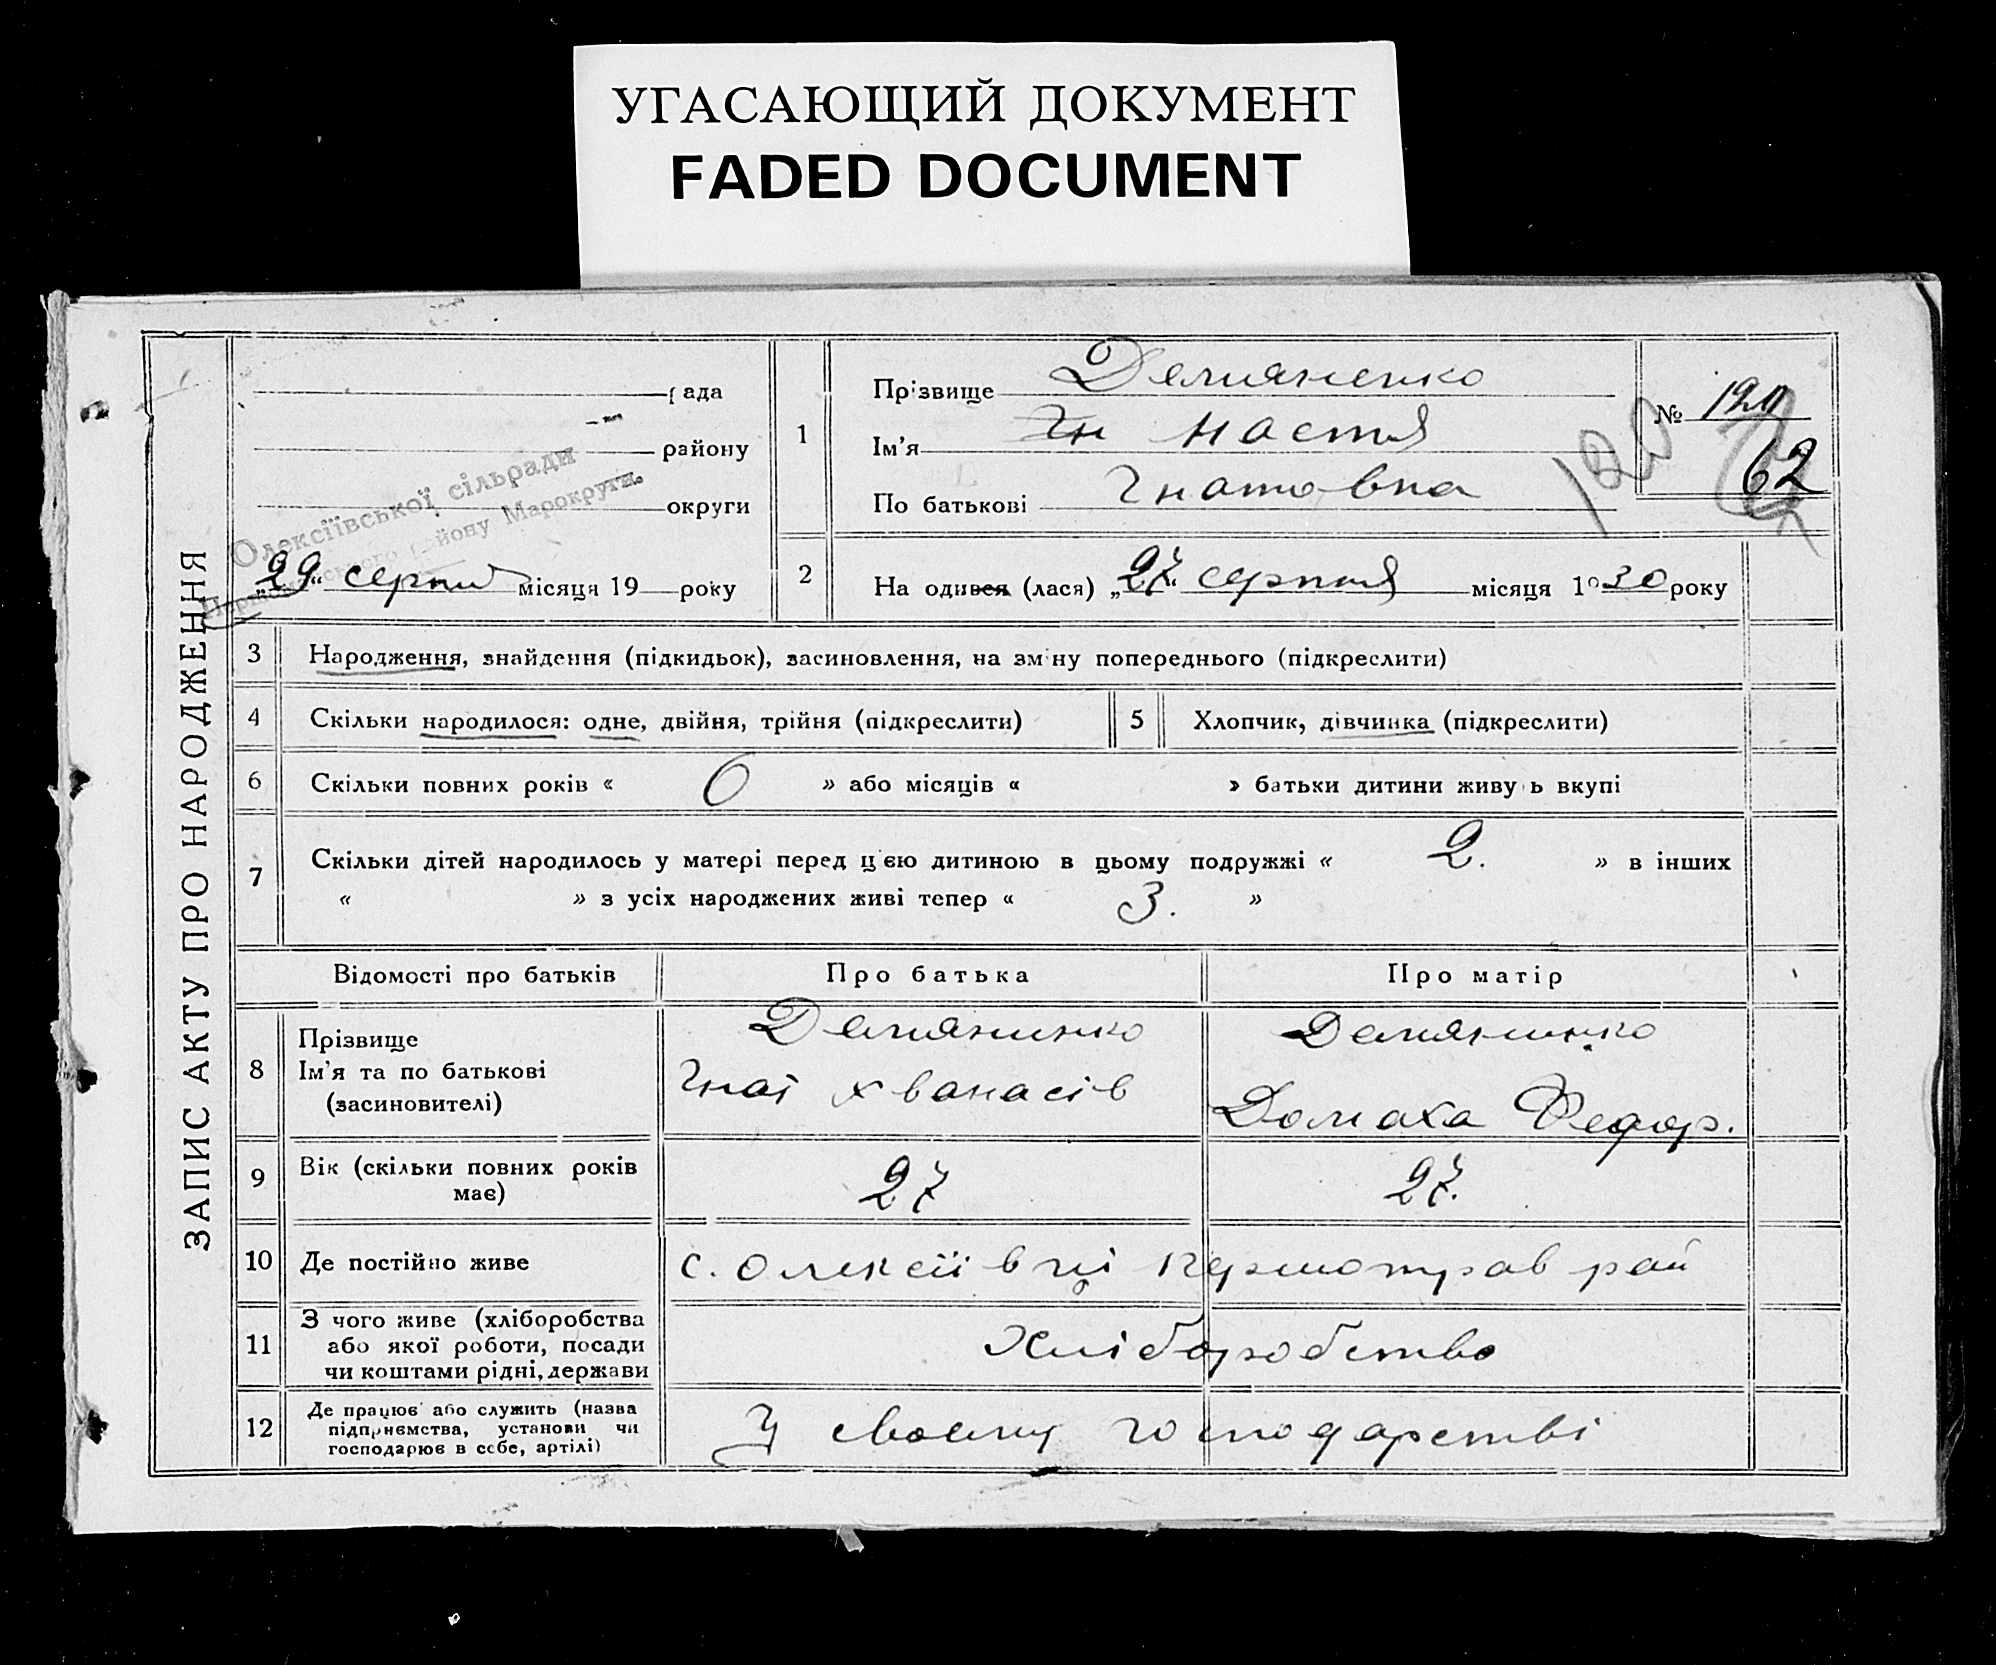 УГАСАЮЩИЙ ДОКУМЕНТ
FADED DOCUMENT
ЗАПИС АКТУ ПРО НАРОДЖЕННЯ
рада
району
округи
Олексіївської сільради
району Марокруги.
„29“ серпня місяця 19 року
1
Прізвище Демяненко
Ім'я Гн Настя
По батькові Гнатовна
№ 120
120
62
2
На одився (лася) „27“ серпня місяця 1930 року
3 Народження, знайдення (підкидьок), засиновлення, на зміну попереднього (підкреслити)
4 Скільки народилося: одне, двійня, трійня (підкреслити)
5 Хлопчик, дівчинка (підкреслити)
6 Скільки повних років « 6 » або місяців « » батьки дитини живу ь вкупі
7 Скільки дітей народилось у матері перед цією дитиною в цьому подружжі « 2. » в інших
« » з усіх народжених живі тепер « 3. »
Відомості про батьків Про батька Про матір
8
Прізвище
Ім'я та по батькові
(засиновителі)
Демяненко
Гнат Хванасів
Демяненко
Домаха Федор.
9
Вік (скільки повних років
має)
27 27.
10 Де постійно живе с. Олексіївці рай
11
З чого живе (хліборобства
або якої роботи, посади
чи коштами рідні, держави
Хліборобство
12
Де працює або служить (назва
підприємства, установи чи
господарює в себе, артілі)
У своєму господарстві